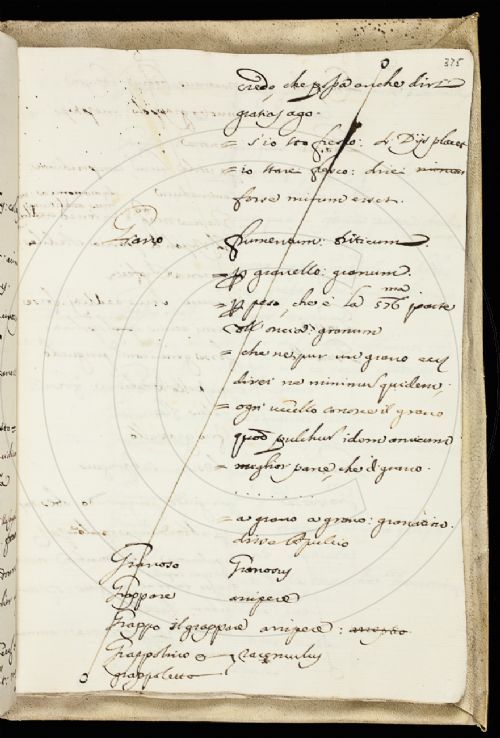 375
credo, che possa anche dirsi
gratias ago.
= s'io sto fresco: si Dijs placet
= io starei fresco: direi
forse mirum esset.
Grano frumentum: triticum
= p granello: granum.
= p peso, che è la 576ma parte
dell'oncia: granum
= che ne pur un grano etc
direi ne minimus quidem:
= ogni uccello conosce il grano
quod pulchrum idem amicum
= meglior pane, che di grano.
. . . . . . . .
= a grano a grano: granatim.
disse Apuleio
Granoso Granosus
Grappare arripere
Grappo il grappare arripere:
Grappolino
grappoletto racemulus